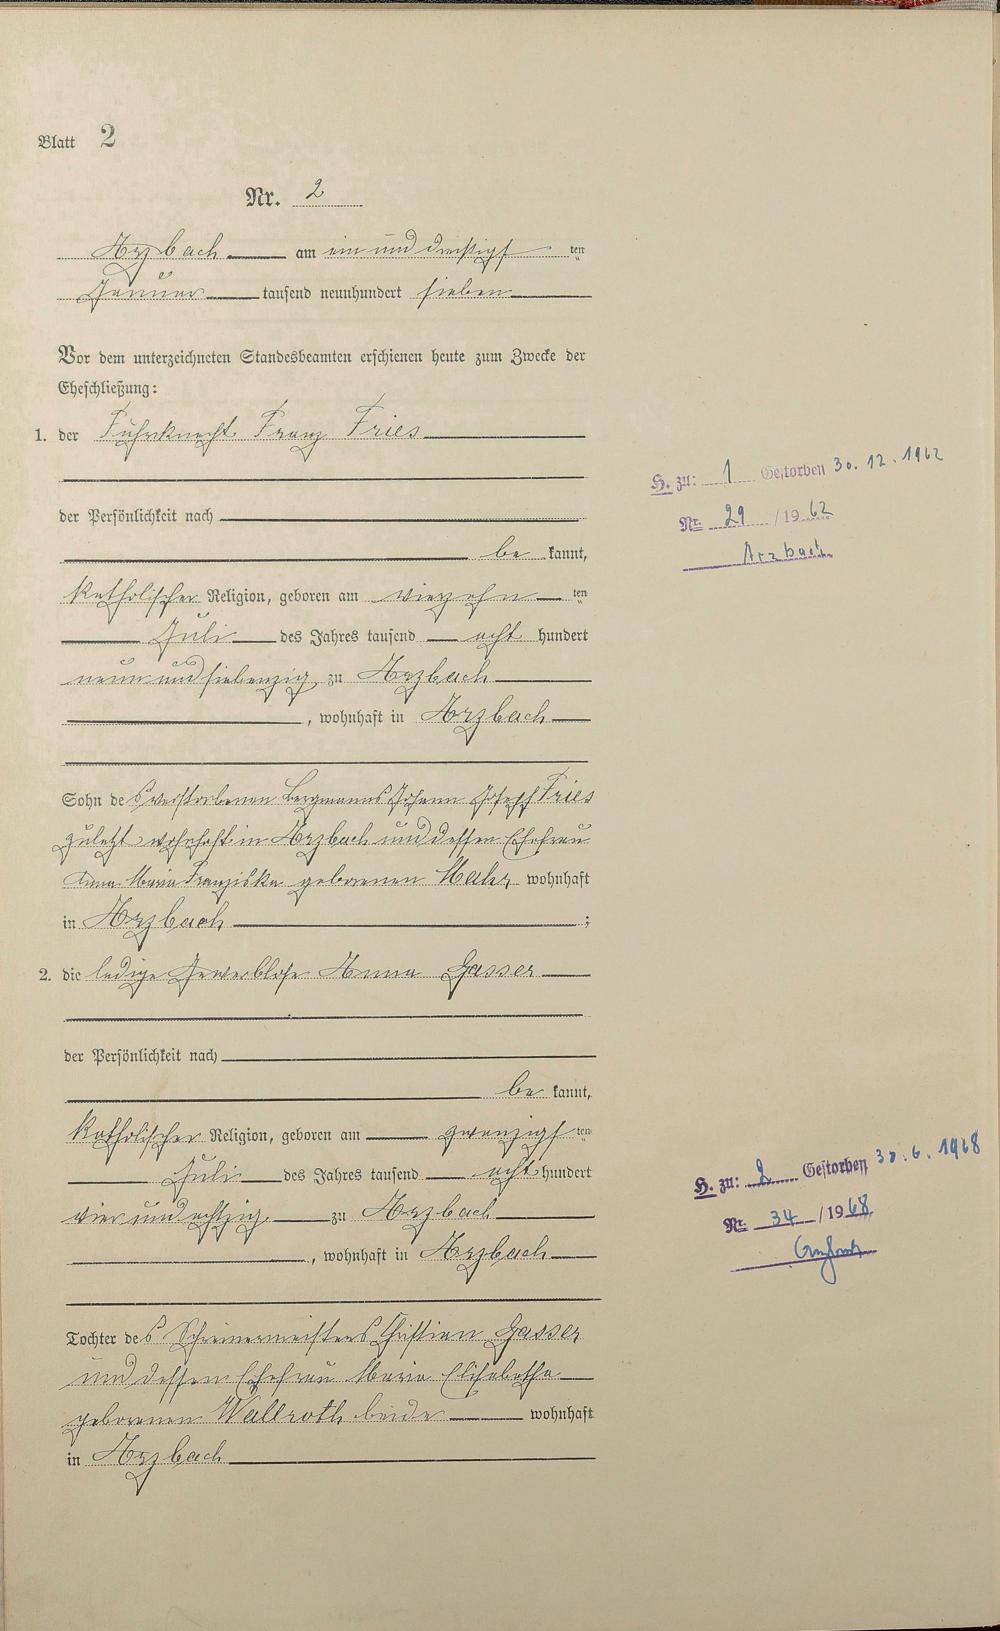 Blatt 2
Nr. 2
Arzbach am ein und dreißigs ten
Januar tausend neunhundert sieben
Vor dem unterzeichneten Standesbeamten erschienen heute zum Zwecke der
Eheschließung:
1. der Fuhrknecht Franz Fries
der Persönlichkeit nach
be kannt,
katholischer Religion, geboren am vierzehn ten
Juli des Jahres tausend acht hundert
neun und siebenzig zu Arzbach
, wohnhaft in Arzbach
Sohn des verstorbenen Bergmanns Johann Joseph Fries
zuletzt wohnhaft in Arzbach und dessen Ehefrau
Anna Maria Franziska geborenen Mahr wohnhaft
in Arzbach ;
2. die ledige Gewerblose Anna Gasser
der Persönlichkeit nach
be kannt,
katholischer Religion, geboren am zwanzigs ten
Juli des Jahres tausend acht hundert
vier und achtzig zu Arzbach
, wohnhaft in Arzbach
Tochter des Schreinermeisters Christian Gasser
und dessen Ehefrau Maria Elisabetha
geborenen Wallroth beide wohnhaft
in Arzbach
H. zu: 1 Gestorben 30.12.1962
Nr. 29 /1962
Arzbach
H. zu: 2 Gestorben 30.6.1968
Nr. 34 /1968